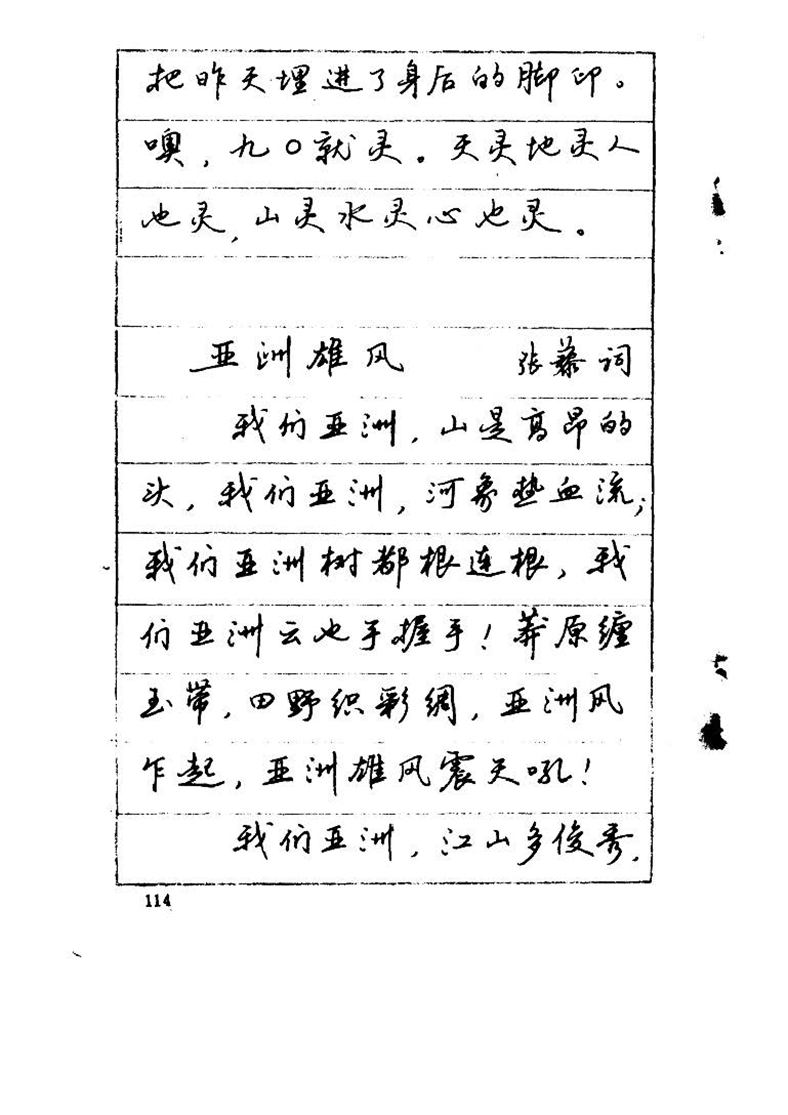 把昨天埋进了身后的脚印。
噢，九〇就灵。天灵地灵人
也灵，山灵水灵心也灵。
亚洲雄风 张藜词
我们亚洲，山是高昂的
头，我们亚洲，河象热血流；
我们亚洲树都根连根，我
们亚洲云也手握手！莽原缠
玉带，田野织彩绸，亚洲风
乍起，亚洲雄风震天吼！
我们亚洲，江山多俊秀，
114